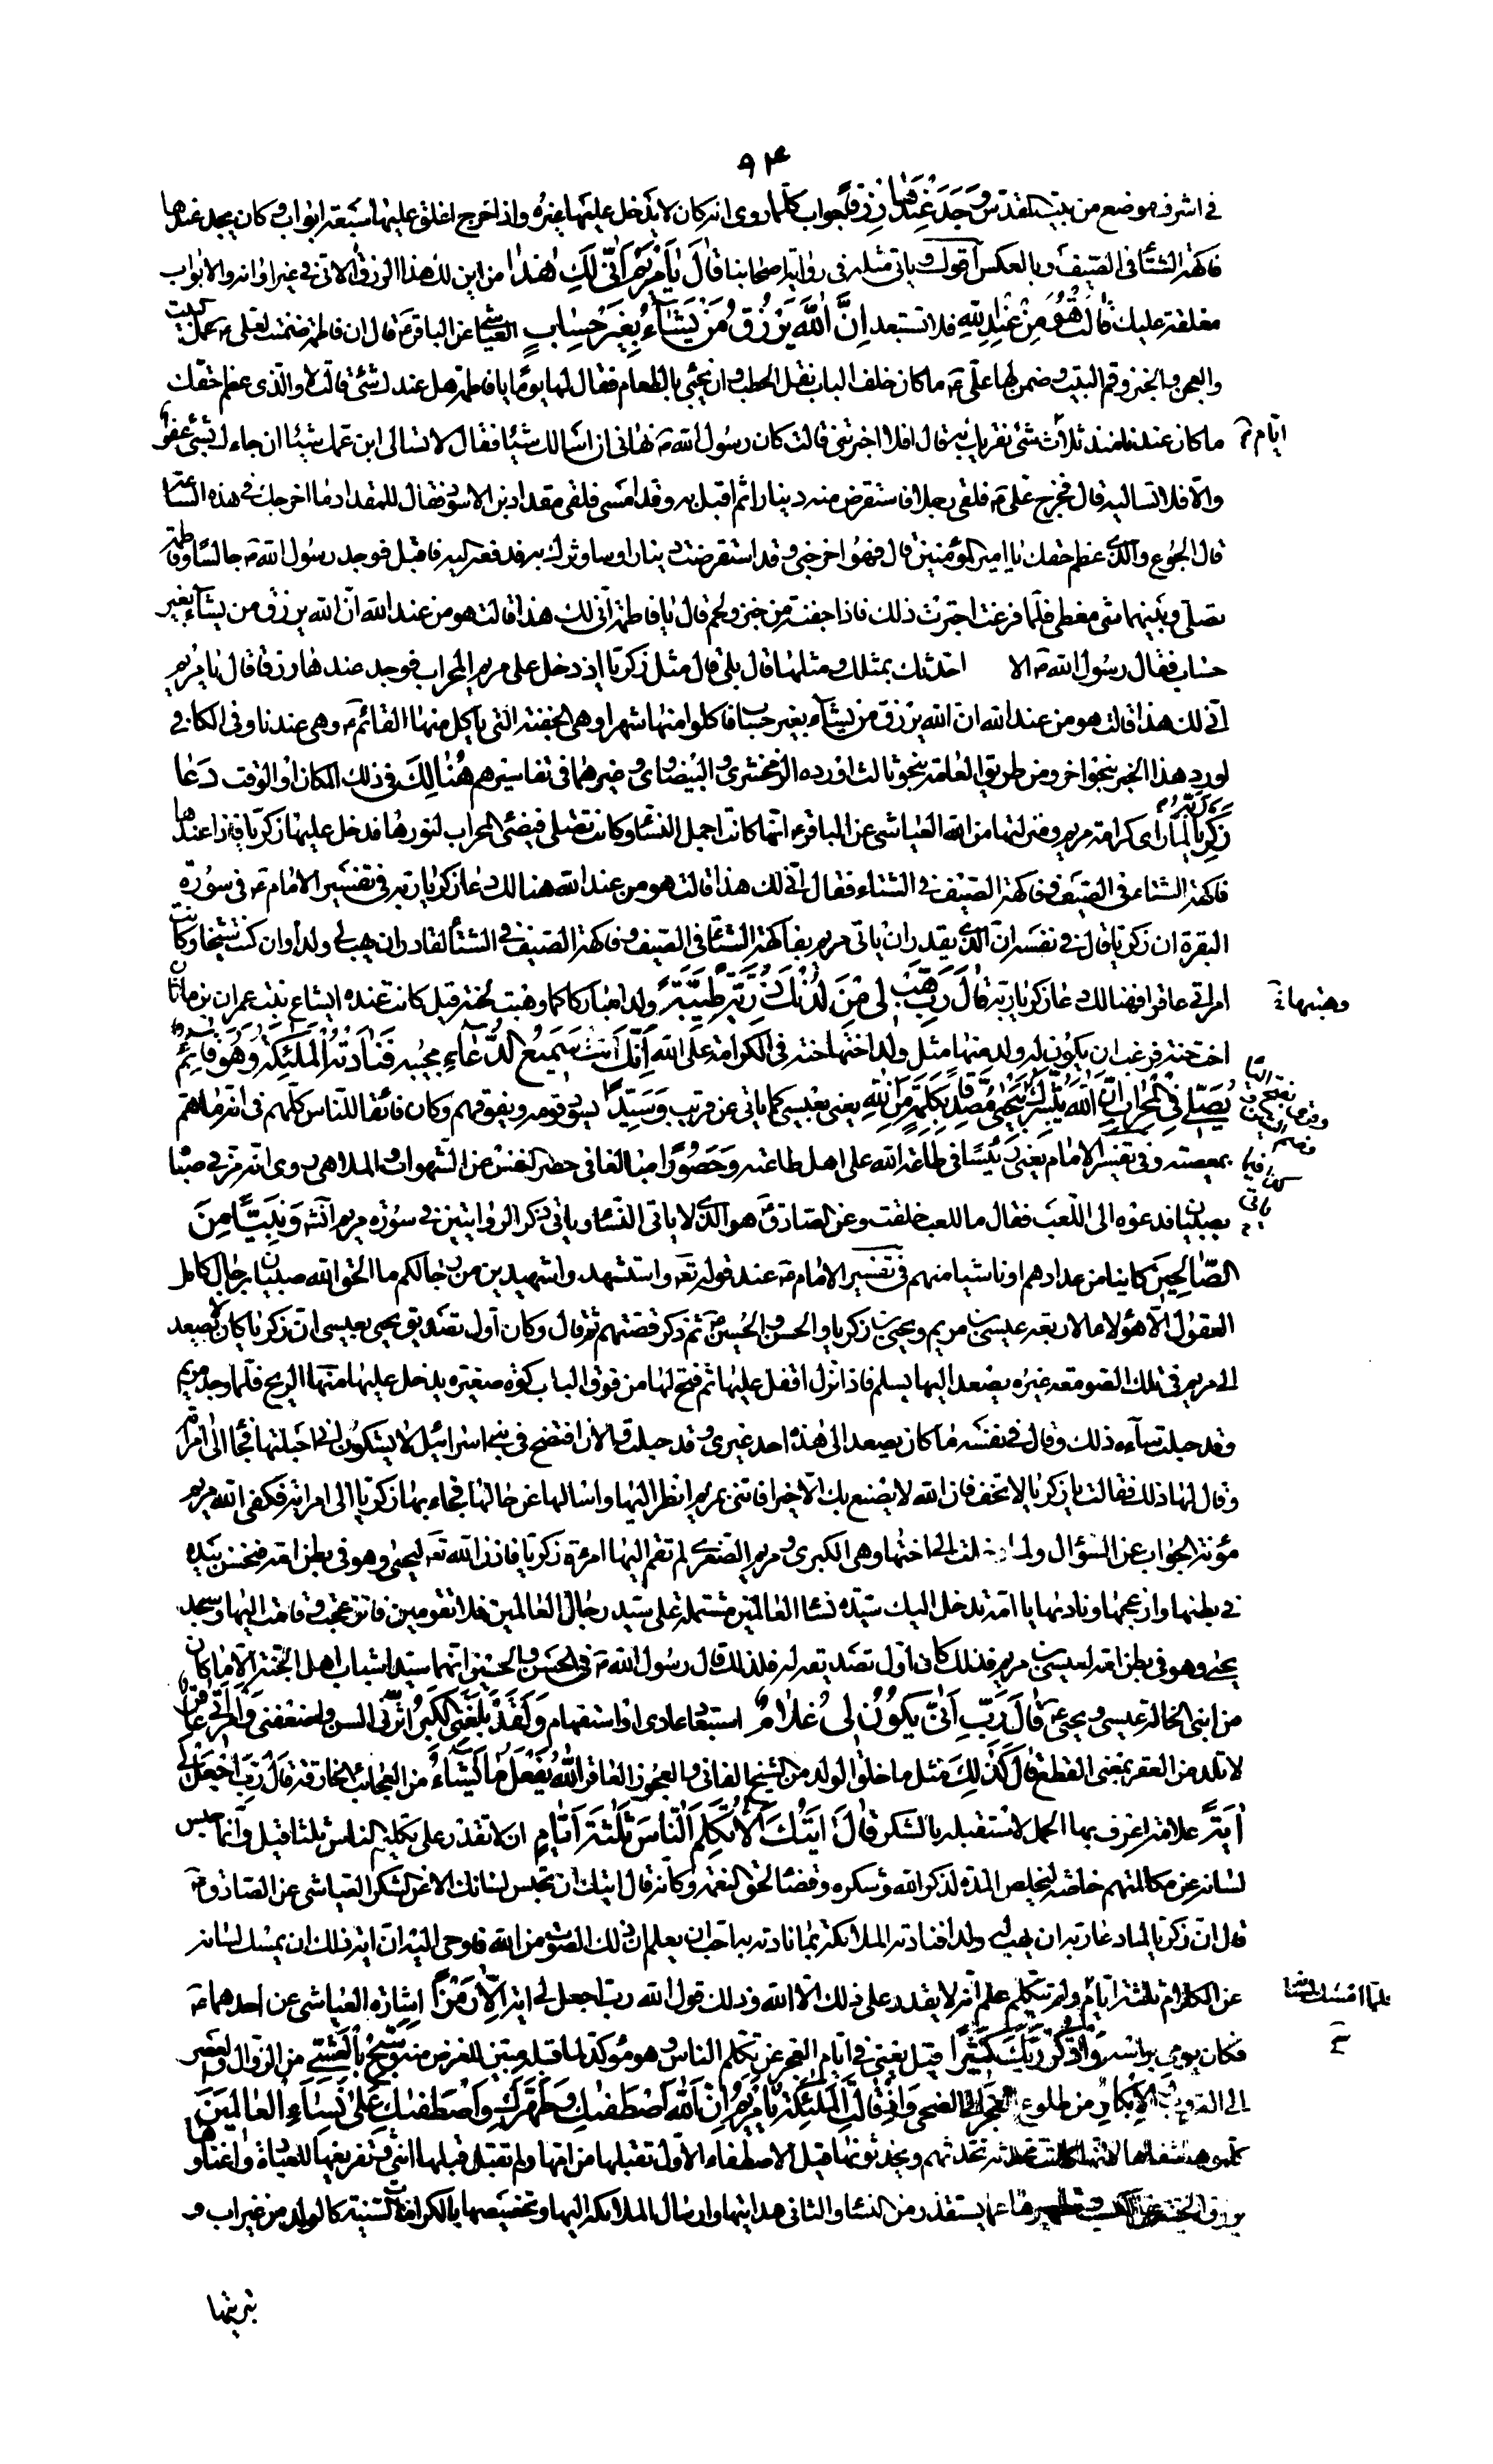 ٩٤
في اشرف موضع من بيت المقدس وَجَدَ عِنْدَهَا رِزْقًا جواب كلّما روى انه كان لا يدخل عليها غيره واذا خرج اغلق عليها سبعة ابواب وكان يجد عندها
فاكهة الشتاء في الصّيف وبالعكس اقول ويأتي مثله في رواية اصحابنا قَالَ يَا مَرْيَمُ اَنّٰى لَكِ هٰذَا من اين لك هذا الرزق الآتي في غير اوانه والابواب
مغلقة عليك قَالَتْ هُوَ مِنْ عِنْدِ اللهِ فلا تستبعد اِنَّ اللهَ يَرْزُقُ مَنْ يَشَاءُ بِغَيْرِ حِسَابٍ العيّاشي عن الباقر ع قال ان فاطمة ضمنت لعلي ع عمل البيت
والعجين والخبز وقمّ البيت وضمن لها علي ع ما كان خلف الباب نقل الحطب وان يجئ بالطعام فقال لها يومًا يا فاطمة هل عندك شئ قالت لا والذي عظم حقّك
ما كان عندنا منذ ثلاث شئ نقريك به قال افلا اخبرتني قالت كان رسول الله ص نهاني ان اسالك شيئا فقال لا تسالي ابن عمك شيئا ان جاءك بشئ عفوا
ايّام
والّا فلا تساليه قال فخرج علي ع فلقي رجلا فاستقرض منه دينارا ثم اقبل به وقد امسى فلقي مقداد بن الاسود فقال للمقداد ما اخرجك في هذه الساعة
قال الجوع والذي عظم حقك يا امير المؤمنين قال فهو اخرجني وقد استقرضت دينارا وساوثرك به فدفعه اليه فاقبل فوجد رسول الله ص جالسًا وفاطمة
تصلّي وبينهما شئ مغطى فلمّا فرغت اجترت ذلك فاذا جفنة من خبز ولحم قال يا فاطمة انّى لك هذا قالت هو من عند الله انّ الله يرزق من يشاء بغير
حساب فقال رسول الله ص الا احدّثك بمثلك ومثلها قال بلى قال مثل زكريّا اذ دخل على مريم المحراب فوجد عندها رزقا قال يا مريم
انّى لك هذا قالت هو من عند الله ان الله يرزق من يشاء بغير حساب فاكلوا منها شهرا وهي الجفنة التي ياكل منها القائم ع وهي عندنا وفي الكافي
اورد هذا الخبر بنحو اخر ومن طريق العامّة بنحو ثالث اورده الزمخشري والبيضاوي وغيرهما في تفاسيرهم هُنَالِكَ في ذلك المكان او الوقت دَعَا
زَكَرِيَّا رَبَّهُ لمّا راى كرامة مريم ومنزلتها من الله العياشي عن الباقر ع انّها كانت اجمل النساء وكانت تصلّي فيضئ المحراب لنورها فدخل عليها زكريّا فاذا عندها
فاكهة الشتاء في الصّيف وفاكهة الصّيف في الشتاء فقال انّى لك هذا قالت هو من عند الله هنالك دعا زكريّا ربه في تفسير الامام ع في سورة
البقرة ان زكريّا قال في نفسه ان الذي يقدر ان ياتي مريم بفاكهة الشتاء في الصيف وفاكهة الصّيف في الشتاء لقادر ان يهب لي ولدا وان كنت شيخا وكانت
امراتي عاقرا فهنالك دعا زكريّا ربّه قَالَ رَبِّ هَبْ لِي مِنْ لَدُنْكَ ذُرِّيَّةً طَيِّبَةً ولدا مباركا كما وهبت لحنة قيل كانت عنده ايشاع بنت عمران بن ماثان
وهبتها
اخت حنّة فرغب ان يكون له ولد منها مثل ولد اختها حنّة في الكرامة على الله اِنَّكَ سَمِيعُ الدُّعَاءِ مجيبه فَنَادَتْهُ الْمَلٰئِكَةُ وَهُوَ قَائِمٌ
يُصَلِّي فِي الْمِحْرَابِ اَنَّ اللهَ يُبَشِّرُكَ بِيَحْيٰى مُصَدِّقًا بِكَلِمَةٍ مِنَ اللهِ يعني بعيسى كما ياتي عن قريب وَسَيِّدًا يسود قومه ويفوقهم وكان فائقا للناس كلّهم في انه ما همّ
بمعصية وفي تفسير الامام يعني رئيسًا في طاعة الله على اهل طاعته وَحَصُورًا مبالغا في حصر النفس عن الشهوات والملاهي روى انّه مرّ في صباه
بصبيان فدعوه الى اللّعب فقال ما للعب خلقت وعن الصادق ع هو الذي لا ياتي النساء وياتي ذكر الروايتين في سورة مريم انشاء وَنَبِيًّا مِنَ
الصَّالِحِينَ كاينا من عدادهم او ناشيا منهم في تفسير الامام ع عند قوله تع واستشهدوا شهيدين من رجالكم ما الحق الله صبيانا برجال كاملي
العقول الّا هؤلاء الاربعة عيسى بن مريم ويحيى بن زكريا والحسن والحسين ع ثم ذكر قصّتهم ثم قال وكان اول تصديق يحيى بعيسى انّ زكريا كان لا يصعد
الى مريم في تلك الصومعة غيره يصعد اليها بسلم فاذا نزل اقفل عليها ثم فتح لها من فوق الباب كوّة صغيرة يدخل عليها منها الريح فلمّا وجد مريم
وقد حبلت ساءه ذلك وقال في نفسه ما كان يصعد الى هذه احد غيري وقد حبلت والآن افتضح في بني اسرائيل لا يشكّون اني احبلتها فجاء الى امراته
وقال لها ذلك فقالت يا زكريا لا تخف فان الله لا يصنع بك الّا خيرا فاتني بمريم انظر اليها واسالها عن حالها فجاء بها زكريّا الى امراته فكفى الله مريم
مؤنة الجواب عن السؤال ولمّا دخلت الى اختها وهي الكبرى ومريم الصغرى لم تقم اليها امرءة زكريّا فاذن الله تع ليحيى وهو في بطن امّه فنخس بيده
في بطنها وازعجها ونادٰيها يا امّه تدخل اليك سيّدة نساء العالمين مشتملة على سيّد رجال العالمين فلا تقومين فانزعجت وقامت اليها وسجد
يحيى وهو في بطن امّه لعيسى بن مريم فذلك كان اول تصديقه له فلذلك قال رسول الله ص في الحسن والحسين انهما سيّدا شباب اهل الجنّة الّا ما كان
من ابني الخالة عيسى ويحيى ع قَالَ رَبِّ اَنّٰى يَكُونُ لِي غُلَامٌ استبعاد عادي او استفهام وَقَدْ بَلَغَنِيَ الْكِبَرُ اثّر فيّ السن واضعفني وَامْرَاَتِي عَاقِرٌ
لا تلد من العقر بمعنى القطع قَالَ كَذٰلِكَ مثل ما خلق الولد من الشيخ الفاني والعجوز العاقر اللهُ يَفْعَلُ مَا يَشَاءُ من العجائب الخارقة قَالَ رَبِّ اجْعَلْ لِي
اٰيَةً علامة اعرف بها الحمل لاستقبله بالشكر قَالَ اٰيَتُكَ اَلَّا تُكَلِّمَ النَّاسَ ثَلٰثَةَ اَيَّامٍ ان لا تقدر على تكليم الناس ثلثا قيل وانّما حبس
لسانه عن مكالمتهم خاصّة ليخلص المدة لذكر الله وشكره وقضاء لحق النعمة وكانّه قال ايتك ان تحبس لسانك الّا عن الشكر العياشي عن الصّادق ع
قال انّ زكريّا لمّا دعا ربه ان يهب له ولدا فنادته الملائكة بما نادته به احبّ ان يعلم ان ذلك الصّوت من الله فاوحى اليه ان اية ذلك ان يمسك لسانه
عن الكلام ثلثة ايّام ولم يتكلم علم انّه لا يقدر على ذلك الّا الله وذلك قول الله ربّ اجعل لي اية اِلَّا رَمْزًا اشارة العياشي عن احدهما ع
فلمّا امسك لسانه
فكان يومي براسه وَاذْكُرْ رَبَّكَ كَثِيرًا قيل يعني في ايّام العجز عن تكلّم الناس وهو مؤكّد لما قبله مبيّن للغرض منه وَسَبِّحْ بِالْعَشِيِّ من الزوال او العصر
الى الغروب وَالْاِبْكَارِ من طلوع الفجر الى الضحى وَاِذْ قَالَتِ الْمَلٰئِكَةُ يَا مَرْيَمُ اِنَّ اللهَ اصْطَفٰيكِ وَطَهَّرَكِ وَاصْطَفٰيكِ عَلٰى نِسَاءِ الْعَالَمِينَ
كلّموها شفاها لانّها كانت محدّثة تحدّثهم ويحدّثونها قيل الاصطفاء الاوّل تقبّلها من امّها ولم تقبل قبلها انثى وتفريغها للعبادة واغناؤها
برزق الجنّة عن الكسب وتطهيرها عمّا يستقذر من النساء والثاني هدايتها وارسال الملائكة اليها وتخصيصها بالكرامات السنيّة كالولد من غير اب و
تبرئتها